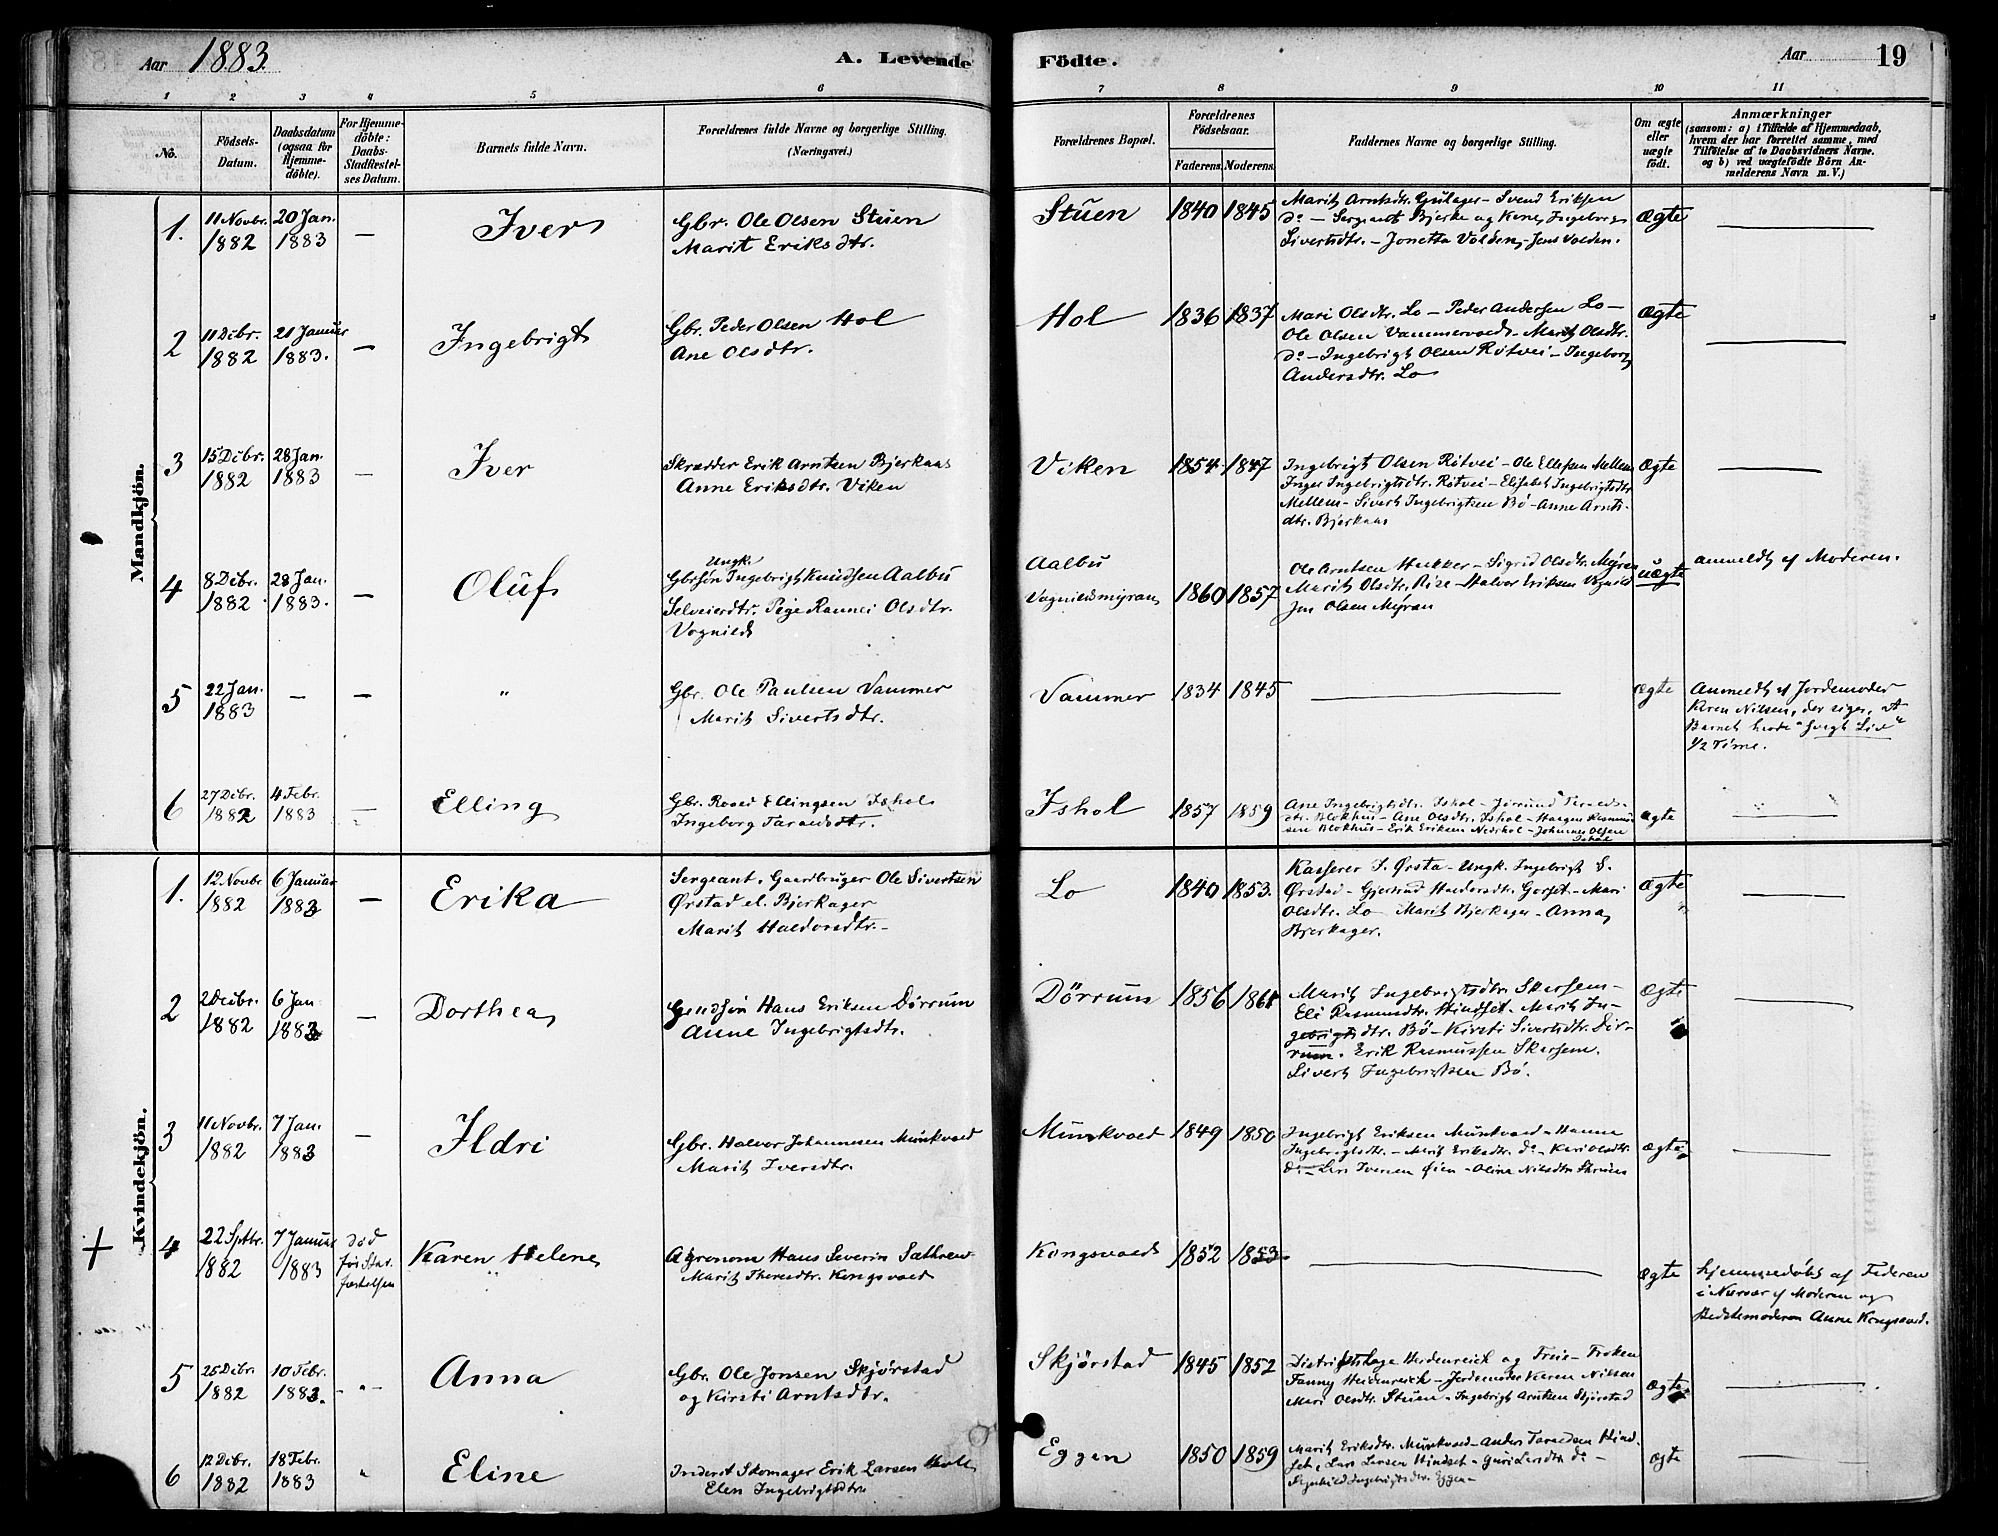 Aar 1883. A. Levende Födte. Aar 19
1 2 3 4 5 6 7 8 9 10 11
No.
Födsels-Datum.
Daabsdatum (ogsaa for Hjemme-döbte).
For Hjemme-döbte: Daabs-Stadfæstel-ses Datum.
Barnets fulde Navn.
Forældrenes fulde Navne og borgerlige Stilling. (Næringsvei.)
Forældrenes Bopæl.
Forældrenes Födselsaar.
Faderens. Moderens.
Faddernes Navne og borgerlige Stilling.
Om ægte eller uægte födt.
Anmærkninger
(saasom: a) i Tilfælde af Hjemmedaab,
hvem der har forrettet samme, med
Tilföielse af to Daabsvidners Navne,
og b) ved uægtefödte Börn An-
melderens Navn m. V.)
Mandkjön.
1. 11 Novbr. 1882 20 Jan. 1883 — Iver
Gbr. Ole Olsen Stuen
Marit Eriksdtr.
Stuen 1840 1845
Marit Arntsdtr. Gulager - Svend Eriksen
do - Sergeant Bjerke og Kone Ingeborg
Sivertsdtr. - Jonetta Volden, - Jens Volden.
ægte —
2 11 Dcbr. 1882 21 Januar 1883. — Ingebrigt
Gbr. Peder Olsen Hol
Ane Olsdtr.
Hol 1836 1837
Mari Olsdtr. Lo - Peder Andersen Lo -
Ole Olsen Vammervold - Marit Olsdtr.
do - Ingebrigt Olsen Rötvei - Ingeborg
Andersdtr. Lo
ægte —
3 15 Dcbr. 1882 28 Jan. 1883 — Iver
Skrædder Erik Arntsen Bjerkaas
Anne Eriksdtr. Viken
Viken 1854 1847
Ingebrigt Olsen Rötvei - Ole Ellefsen Mellem
Inger Ingebrigtsdtr. Rötvei - Elisabet Ingebrigtsdtr.
Mellem - Sivert Ingebrigtsen Bö - Anne Arnts-
dtr. Bjerkaas
ægte —
4 8 Dcbr. 1882 28 Jan. 1883. — Oluf
Ungk.
Gbrsön Ingebrigt Knudsen Aalbu
Selveierdtr. Pige Rannei Olsdtr.
Vognild
Aalbu
Vognildsmyran 1860 1857
Ole Arntsen Hukker - Sigrid Olsdtr. Myran
Marit Olsdtr. Rise - Halvor Eriksen Vognild
Jon Olsen Myran
uægte anmeldt af Moderen.
5 22 Jan. 1883 — — "
Gbr. Ole Paulsen Vammer
Marit Sivertsdtr.
Vammer 1834 1845 —
ægte
Anmeldt af Jordemoder
Karen Nilsen, der siger, at
Barnet havde "svagt Liv"
1/2 Time.
6 27 Dcbr. 1882 4 Febr. 1883 — Elling
Gbr. Roald Ellingsen Ishol
Ingeborg Taraldsdtr.
Ishol 1857 1859
Ane Ingebrigtsdtr. Ishol - Jorund Taralds-
dtr. Blokhus - Ane Olsdtr. Ishol - Haagen Rasmus-
sen Blokhus - Erik Eriksen Nedrhol - Johannes Olsen
Ishol
ægte —
Kvindekjön.
1. 12 Novbr 1882 6 Januar 1883 — Erika
Sergeant. Gaardbruger Ole Sivertsen
Ørstad el. Bjerkager
Marit Haldorsdtr. -
Lo 1840 1853.
Kasserer S. Ørsta - Ungk. Ingebrigt S.
Ørstad - Gjertrud Haldorsdtr. Gorset - Mari
Olsdtr. Lo Marit Bjerkager - Anna
Bjerkager.
ægte —
2 2 Dcbr. 1882 6 Jan 1883 — Dorthea
Gbrdsön Hans Eriksen Dörrum
Anne Ingebrigtsdtr.
Dörrum 1856 1861
Marit Ingebrigtsdtr. Skarsem -
Eli Rasmusdtr. Hindset - Marit In-
gebrigtsdtr. Bö - Kirsti Sivertsdtr. Dör-
rum. Erik Rasmussen Skarsem.
Sivert Ingebrigtsen Bö.
ægte —
3 11 Novbr. 1882 7 Jan. 1883 — Ildri
Gbr. Halvor Johannesen Munkvold
Marit Iversdtr.
Munkvold 1849 1850
Ingebrigt Eriksen Munkvold - Hanna
Ingebrigtsdtr. - Marit Eriksdtr. do - Kari Olsdtr.
do - Lars Iversen Øien - Oline Nilsdtr.
ægte —
+ 4 22 Sptbr. 1882 7 Januar 1883 död før Stad-fæstelsen Karen Helene
Agronom Hans Severin Sæthren
Marit Thoresdtr. Kongsvold
Kongsvold 1852 1853 —
ægte
hjemmedöbt af Faderen
i Nærvær af Moderen og
Bedstemoderen Anne Kongsvold.
5 25 Dcbr. 1882 10 Febr. 1883. - " - Anna
Gbr. Ole Jonsen Skjørstad
og Kirsti Arntsdtr.
Skjørstad 1845 1852
Distriktslæge Heidenreich og Frue - Frøken
Fanny Heidenreich - Jordemoder Karen Nilsen
Mari Olsdtr. Stuen - Ingebrigt Arntsen Skjørstad
ægte —
6 12 Dcbr. 1882 18 Febr. 1883 " Eline
Inderst Skomager Erik Larsen
Elen Ingebrigtsdtr.
Eggen 1850 1859
Marit Eriksdtr. Munkvold - Anders Taraldsen Hind-
set, Lars Larsen Hindset - Guri Larsdtr. do -
Ingebrigtsdtr. Eggen -
ægte —